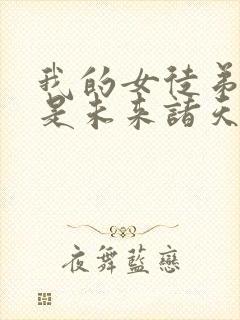 我的女徒弟
是未来諸天
夜舞藍戀